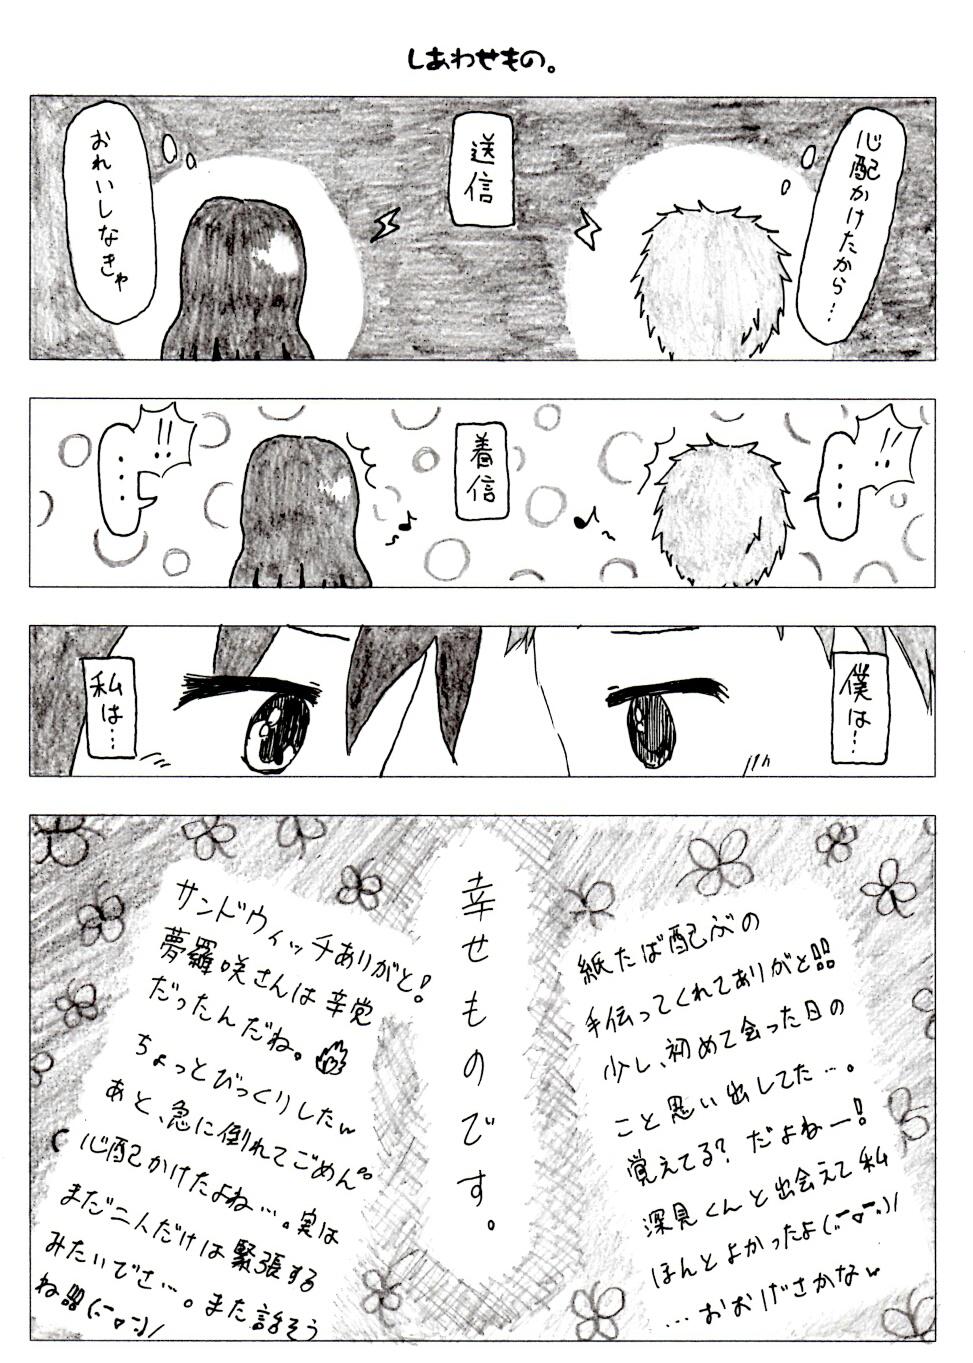 しあわせもの。
心配かけたから…
送信
おれいしなきゃ
!!
…
着信
!!
…
僕は…
私は…
紙たば配ぶの
手伝ってくれてありがと!!
少し、初めて会った日の
こと思い出してた…。
覚えてる?だよねー!
深見くんと出会えて私
ほんとよかったよ(｡ｰ̀ｏｰ́｡)/
…おおげさかなw
幸せものです。
サンドウィッチありがと!
夢羅咲さんは辛党
だったんだね。
ちょっとびっくりしたw
あと、急に倒れてごめん。
心配かけたよね…。実は
まだ二人だけは緊張する
みたいでさ…。また話そう
ね!!!(｡ｰ̀ｏｰ́｡)/